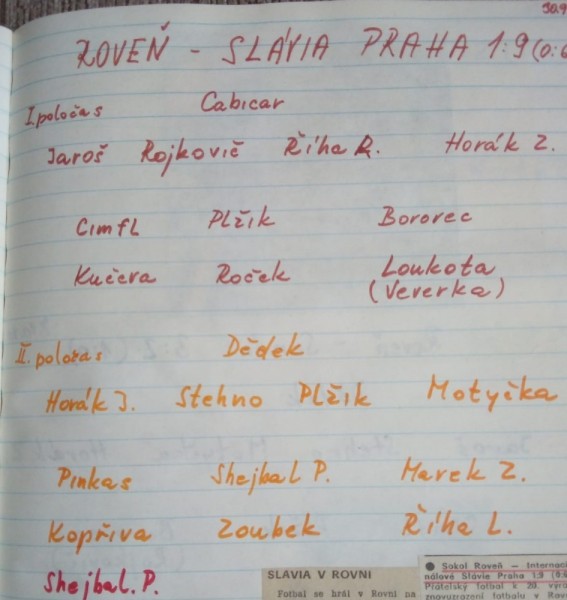 30.9
ROVEŇ - SLÁVIA PRAHA 1:9 (0:6
I. poločas Cabicar
Jaroš Rojkovič Říha R. Horák Z.
Cimfl Plžík Bororec
Kučera Roček Loukota
(Veverka)
II. poločas Dědek
Horák J. Stehno Plžík Motyčka
Pinkas Shejbal P. Marek Z.
Kopřiva Zoubek Říha L.
Shejbal. P.
SLAVIA V ROVNI
Fotbal se hrál v Rovni na
● Sokol Roveň – Internacio
nálové Slávie Praha 1:9 (0:6
Přátelský fotbal k 20. výro
znovuzrození fotbalu v Rovn